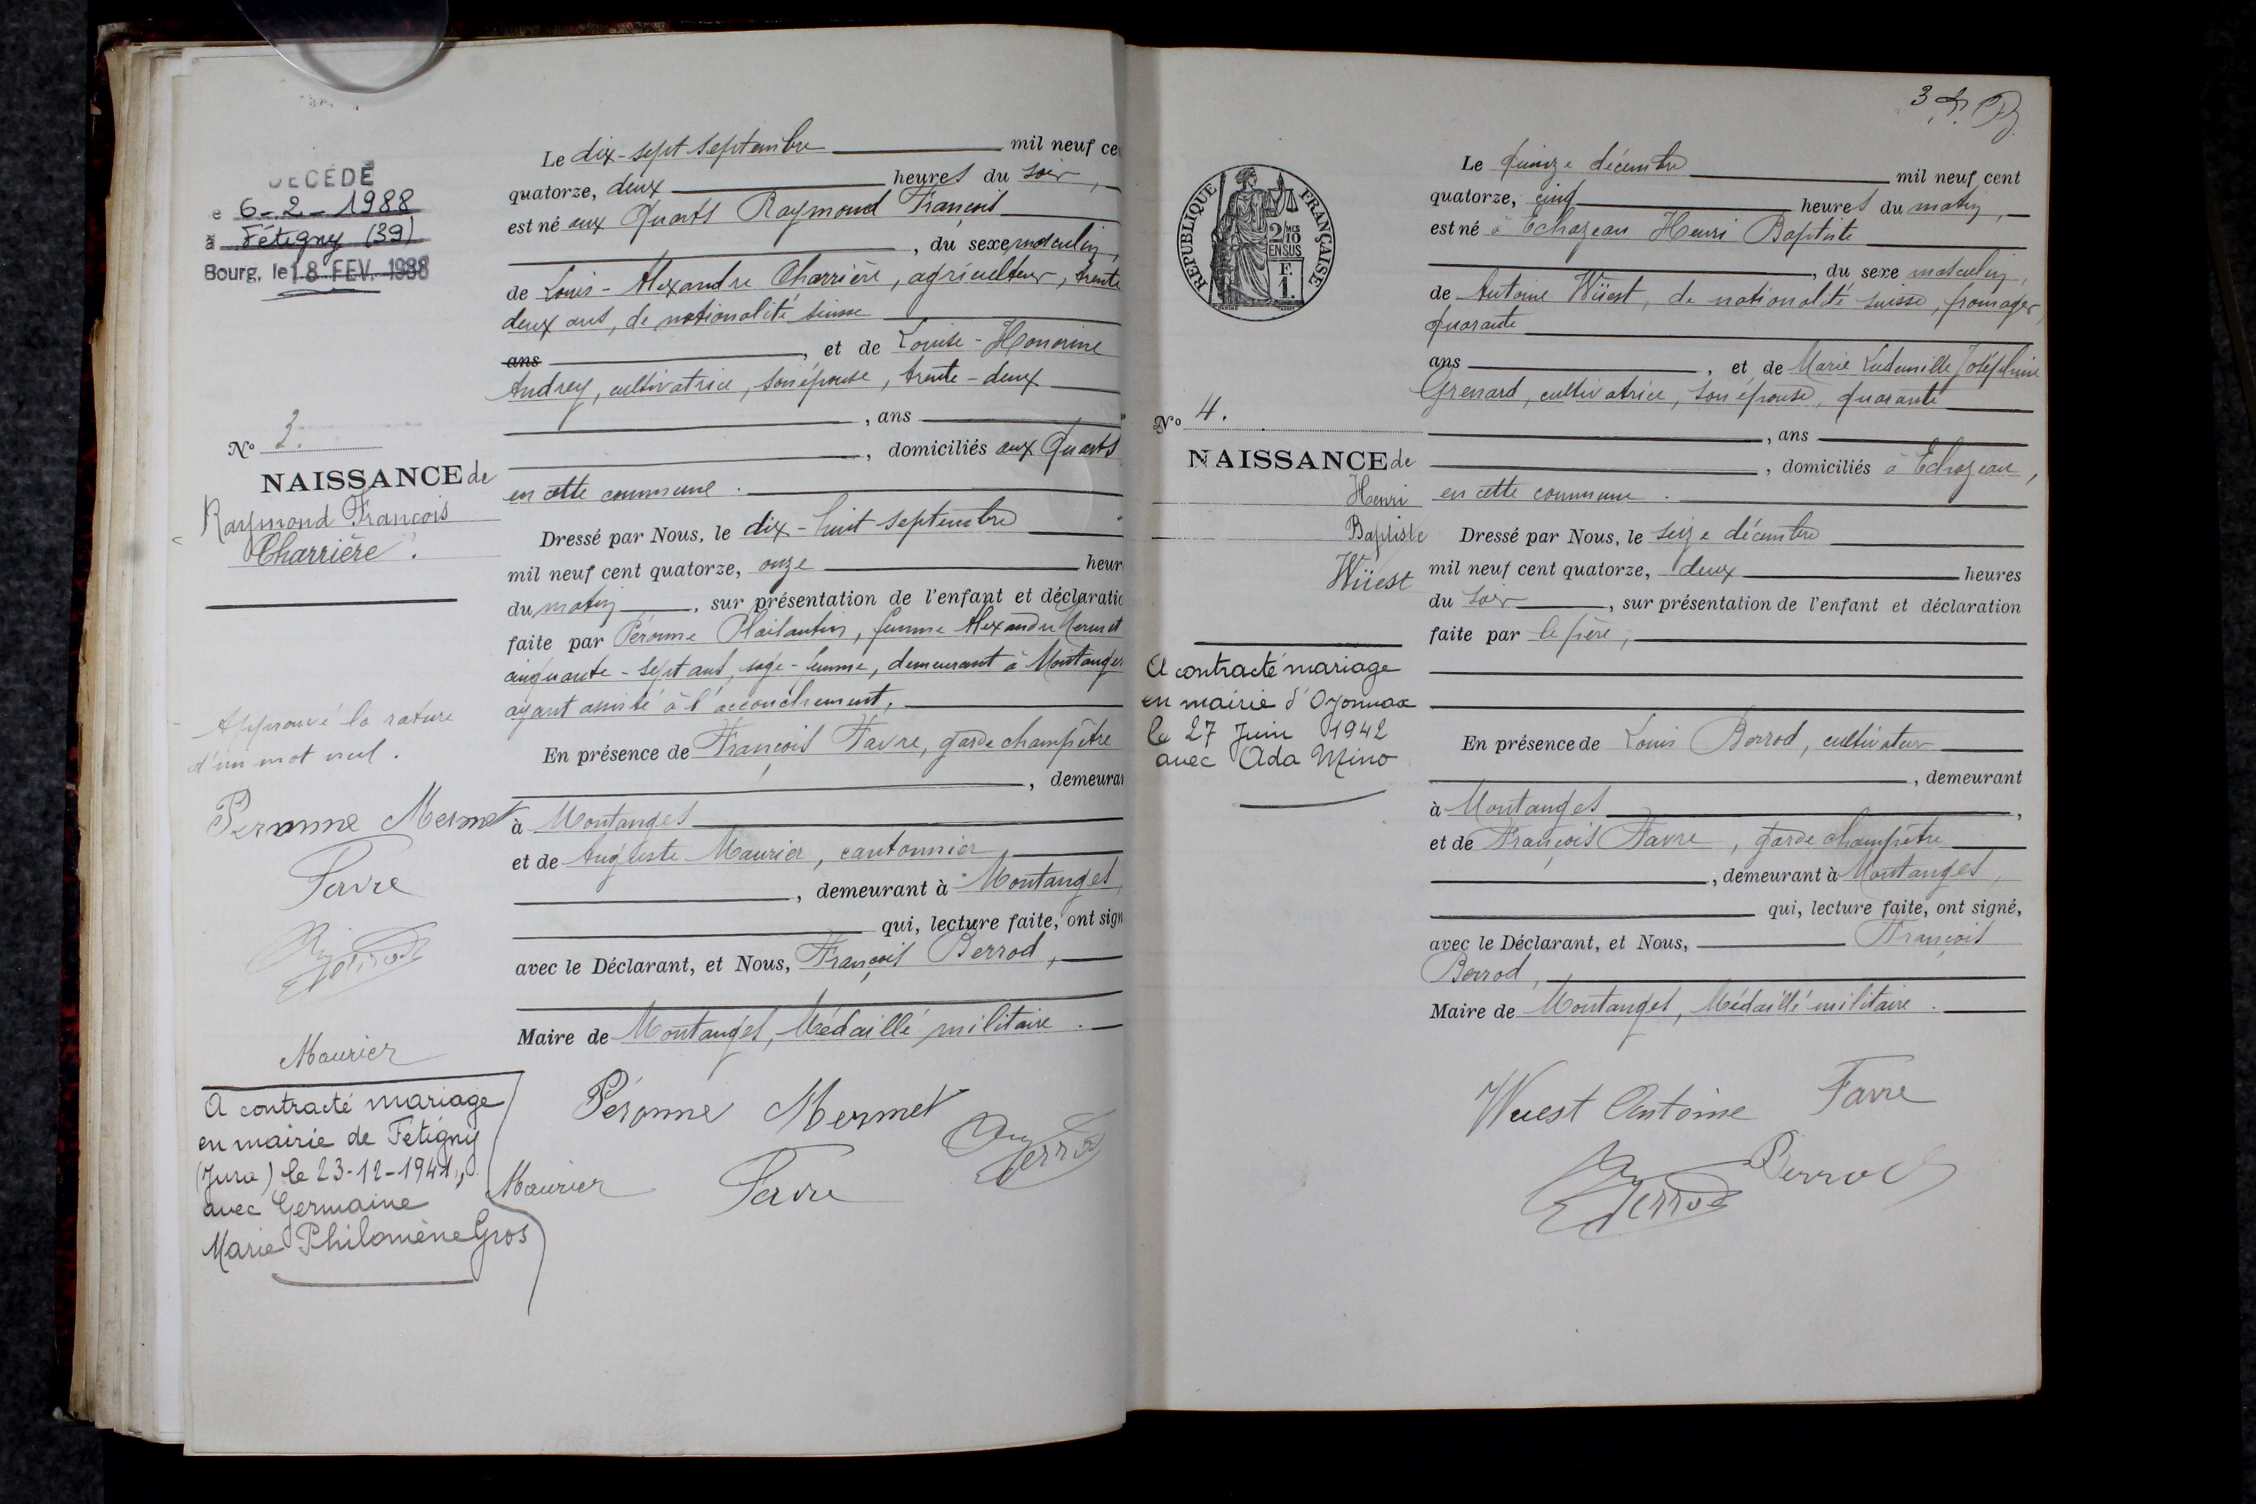 DÉCÉDÉ
le 6-2-1988
à Fétigny (39)
Bourg, le 18 FEV. 1988
N° 3.
NAISSANCE de
Raymond François
Charrière.
Approuvé la rature
d'un mot nul.
Peronne Mermet
Favre
Berrod
Maurier
A contracté mariage
en mairie de Fetigny
(Jura) le 23-12-1941,
avec Germaine
Marie Philomène Gros
Le dix-sept septembre mil neuf ce
quatorze, deux heures du soir,
est né aux Quarts Raymond François
, du sexe masculin,
de Louis-Alexandre Charrière, agriculteur, trente
deux ans, de nationalité suisse
ans , et de Louise-Honorine
Andrey, cultivatrice, son épouse, trente-deux
, ans
, domiciliés aux Quarts
en cette commune.
Dressé par Nous, le dix-huit septembre
mil neuf cent quatorze, onze heur
du matin , sur présentation de l'enfant et déclaratio
faite par Péronne , femme Alexandre Mermet
cinquante-sept ans, sage-femme, demeurant à Montanges
ayant assisté à l'accouchement,
En présence de François Favre, garde champêtre
, demeuran
à Montanges
et de Auguste Maurier, cantonnier,
, demeurant à Montanges,
qui, lecture faite, ont sign
avec le Déclarant, et Nous, François Berrod,
Maire de Montanges, Médaillé militaire.
Péronne Mermet
Berrod
Maurier Favre
3
REPUBLIQUE FRANÇAISE
2/10 MES
EN SUS
F.
1.
N° 4.
NAISSANCE de
Henri
Baptiste
Wüest
A contracté mariage
en mairie d'Oyonnax
le 27 Juin 1942
avec Ada Mino
Le quinze décembre mil neuf cent
quatorze, cinq heures du matin,
est né à Echazeau Henri Baptiste
, du sexe masculin,
de Antoine Wüest, de nationalité suisse, fromager,
quarante
ans , et de Marie Ludemille Joséphine
Grenard, cultivatrice, son épouse, quarante
, ans
, domiciliés à Echazeau,
en cette commune.
Dressé par Nous, le seize décembre
mil neuf cent quatorze, deux heures
du soir , sur présentation de l'enfant et déclaration
faite par le père,
En présence de Louis Berrod, cultivateur
, demeurant
à Montanges ,
et de François Favre, garde champêtre
, demeurant à Montanges,
qui, lecture faite, ont signé,
avec le Déclarant, et Nous, François
Berrod,
Maire de Montanges, Médaillé militaire.
Wuest Antoine Favre
Berrod
Berrod